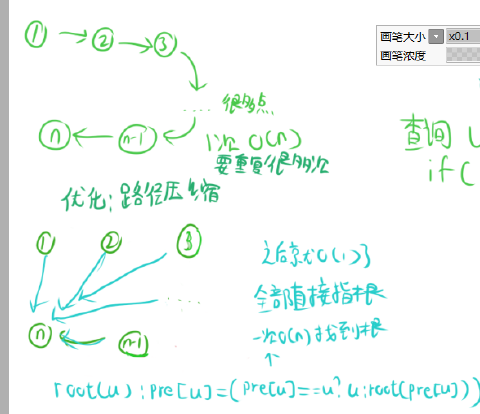 ① → ② → ③
画笔大小 x0.1
画笔浓度
.... 很多点
n ← n-1
1次 O(n)
要重复很多次
查询 u
if(
优化: 路径压缩
① ② ③
之后就O(1)了
....
全部直接指根
n ← n-1
一次O(n)找到根
↑
root(u): pre[u]=(pre[u]==u?u:root(pre[u]))